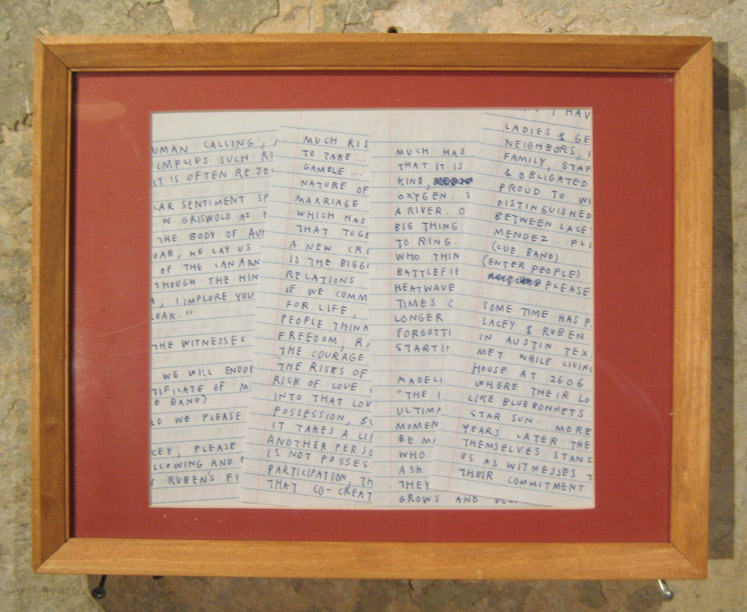 UMAN CALLING,
IMPLIES SUCH RI
IT IS OFTEN REJE
LAR SENTIMENT SP
W. GRISWOLD AT
THE BODY OF AU
OAB, HE LAY US
OF THE
THOUGH THE HIN
I IMPLORE YOU
EAK."
THE WITNESSES
WE WILL ENDO
TIFICATE OF M
E BAND)
LD WE PLEASE
CEY, PLEASE
LLOWING AND
S RUBEN'S FI
MUCH RIS
TO TAKE...
GAMBLE...
NATURE OF
MARRIAGE
WHICH HAS
THAT TOGE
A NEW CRE
IS THE BIGG
RELATIONS
IF WE COMM
FOR LIFE,
PEOPLE THINK
FREEDOM, RI
THE COURAGE
THE RISKS OF
RISK OF LOVE
INTO THAT LOV
POSSESSION, BU
IT TAKES A LI
ANOTHER PERSO
IS NOT POSSES
PARTICIPATION, TH
THAT CO-CREAT
MUCH HAS
THAT IT IS
KIND,
OXYGEN. S
A RIVER. O
BIG THING
TO RING.
WHO THIN
BATTLEFIE
HEATWAVE
TIMES C
LONGER
FORGOTTI
STARTI
MADELI
"THE
ULTIM
MOMEN
BE MI
WHO
ASK
THEY
GROWS AND
I HAV
LADIES & GE
NEIGHBORS,
FAMILY, STAF
& OBLIGATED
PROUD TO WI
DISTINGUISHED
BETWEEN LACE
MENDEZ. PL
(CUE BAND)
(ENTER PEOPLE)
PLEASE
SOME TIME HAS P
LACEY & RUBEN
IN AUSTIN TEX
MET WHILE LIVIN
HOUSE AT 2606
WHERE THEIR LO
LIKE BLUEBONNETS
STAR SUN. MORE
YEARS LATER THE
THEMSELVES STAND
US AS WITNESSES T
THEIR COMMITMENT